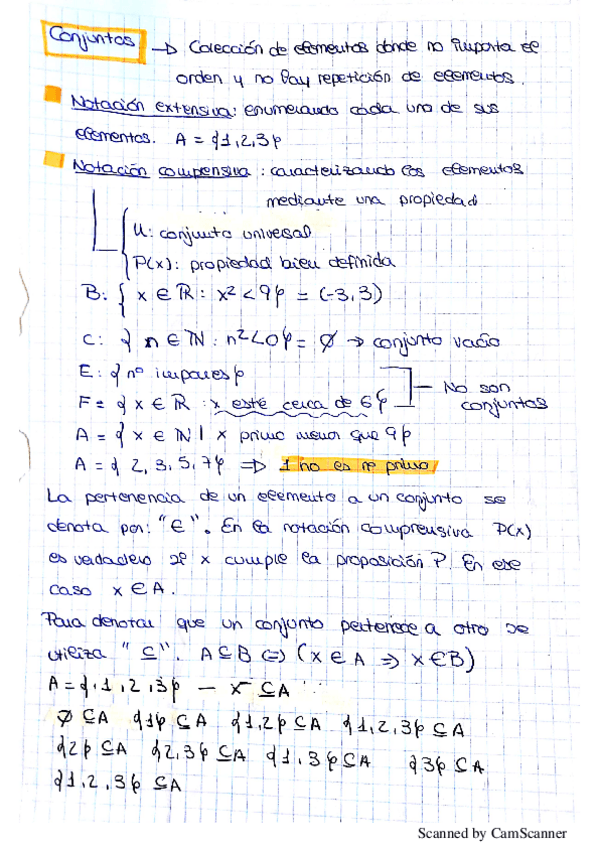 Conjuntos → Colección de elementos donde no importa el
orden y no hay repetición de elementos.
Notación extensiva: enumerando cada uno de sus
elementos. A = {1,2,3}
Notación comprensiva: caracterizando los elementos
mediante una propiedad
U: conjunto universal
P(x): propiedad bien definida
B: { x ∈ ℝ : x² < 9} = (-3,3)
C: { n ∈ ℕ : n² < 0} = ∅ → conjunto vacío
E: { nº impares}
F = { x ∈ ℝ : x esté cerca de 6}
No son
conjuntos
A = { x ∈ ℕ | x primo menor que 9}
A = { 2, 3, 5, 7} ⇒ 1 no es nº primo
La pertenencia de un elemento a un conjunto se
denota por: "∈". En la notación comprensiva P(x)
es verdadero si x cumple la proposición P. En ese
caso x ∈ A.
Para denotar que un conjunto pertenece a otro se
utiliza "⊆". A ⊆ B ⇔ (x ∈ A ⇒ x ∈ B)
A = {1, 2, 3} — x ⊆ A
∅ ⊆ A {1} ⊆ A {1,2} ⊆ A {1,2,3} ⊆ A
{2} ⊆ A {2,3} ⊆ A {1,3} ⊆ A {3} ⊆ A
{1,2,3} ⊆ A
Scanned by CamScanner